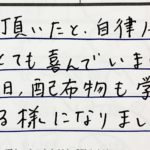 頂いたと、自律
とても喜んでいま
日,配布物も学
る様になりまし